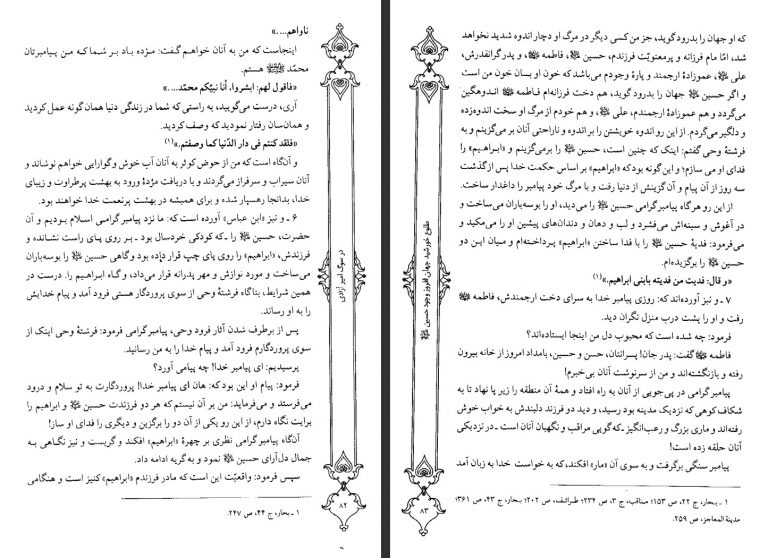 ناراهم....»
اینجاست که من به آنان خواهم گفت: مژده باد بر شما که من پیامبرتان
محمّد ﷺ هستم.
«فاقول لهم: ابشروا، أنا نبیّکم محمّد....»
آری، درست می‌گویید، به راستی که شما در زندگی دنیا همان‌گونه عمل کردید
و همان‌سان رفتار نمودید که وصف کردید.
«فلقد کنتم فی دار الدّنیا کما وصفتم.»(۱)
و آن‌گاه است که من از حوض کوثر به آنان آب خوش و گوارایی خواهم نوشاند و
آنان سیراب و سرفراز می‌گردند و با دریافت مژدهٔ ورود به بهشت پرطراوت و زیبای
خدا، بدانجا رهسپار شده و برای همیشه در بهشت پرنعمت خدا خواهند بود.
۶ ـ و نیز «ابن عباس» آورده است که: ما نزد پیامبر گرامی اسلام بودیم و آن
حضرت، حسین ﷺ را ـ که کودکی خردسال بود ـ بر روی پای راست نشانده و
فرزندش، «ابراهیم» را روی پای چپ قرار داده بود و گاهی حسین ﷺ را بوسه‌باران
می‌ساخت و مورد نوازش و مهر پدرانه قرار می‌داد، و گاه ابراهیم را. درست در
همین شرایط، بناگاه فرشتهٔ وحی از سوی پروردگار هستی فرود آمد و پیام خدایش
را به او رساند.
پس از برطرف شدن آثار فرود وحی، پیامبر گرامی فرمود: فرشتهٔ وحی اینک از
سوی پروردگارم فرود آمد و پیام خدا را به من رسانید.
پرسیدیم: ای پیامبر خدا! چه پیامی آورد؟
فرمود: پیام او این بود که: هان ای پیامبر خدا! پروردگارت به تو سلام و درود
می‌فرستد و می‌فرماید: من بر آن نیستم که هر دو فرزندت حسین ﷺ و ابراهیم را
برایت نگاه دارم، از این رو یکی از آن دو را برگزین و دیگری را فدای او ساز!
آن‌گاه پیامبر گرامی نظری بر چهرهٔ «ابراهیم» افکند و گریست و نیز نگاهی به
جمال دل‌آرای حسین ﷺ نمود و به گریه ادامه داد.
سپس فرمود: واقعیّت این است که مادر فرزندم «ابراهیم» کنیز است و هنگامی
۱ ـ بحار، ج ۴۴، ص ۲۴۷.
در سوک امیر آزادی
۸۲
که او جهان را بدرود گوید، جز من کسی دیگر در مرگ او دچار اندوه شدید نخواهد
شد، امّا مام فرزانه و پرمعنویّت فرزندم، حسین ﷺ، فاطمه ﷺ، و پدر گرانقدرش،
علی ﷺ، عموزادهٔ ارجمند و پارهٔ وجودم می‌باشد که خون او بسان خون من است
و اگر حسین ﷺ جهان را بدرود گوید، هم دخت فرزانه‌ام فاطمه ﷺ اندوهگین
می‌گردد و هم عموزادهٔ ارجمندم، علی ﷺ، و هم خودم از مرگ او سخت اندوه‌زده
و دلگیر می‌گردم. از این رو اندوه خویشتن را بر اندوه و ناراحتی آنان بر می‌گزینم و به
فرشتهٔ وحی گفتم: اینک که چنین است، حسین ﷺ را برمی‌گزینم و «ابراهیم» را
فدای او می سازم؛ و این گونه بود که «ابراهیم» بر اساس حکمت خدا پس از گذشت
سه روز از آن پیام و آن گزینش از دنیا رفت و با مرگ خود پیامبر را داغدار ساخت.
از این رو هرگاه پیامبر گرامی حسین ﷺ را می‌دید، او را بوسه‌باران می‌ساخت و
در آغوش و سینه‌اش می‌فشرد و لب و دهان و دندان‌های پیشین او را می‌مکید و
می‌فرمود: فدیهٔ حسین ﷺ را با فدا ساختن «ابراهیم» پرداخته‌ام و میان این دو
حسین ﷺ را برگزیده‌ام.
«و قال: فدیت من فدیته بابنی ابراهیم.»(۱)
۷ ـ و نیز آورده‌اند که: روزی پیامبر خدا به سرای دخت ارجمندش، فاطمه ﷺ
رفت و او را پشت درب منزل نگران دید.
فرمود: چه شده است که محبوب دل من اینجا ایستاده‌اند؟
فاطمه ﷺ گفت: پدر جان! پسرانتان، حسن و حسین، بامداد امروز از خانه بیرون
رفته و بازنگشته‌اند و من از سرنوشت آنان بی‌خبرم!
پیامبر گرامی در پی‌جویی از آنان به راه افتاد و همهٔ آن منطقه را زیر پا نهاد تا به
شکاف کوهی که نزدیک مدینه بود رسید، و دید دو فرزند دلبندش به خواب خوش
رفته‌اند و ماری بزرگ و رعب‌انگیز ـ که گویی مراقب و نگهبان آنان است ـ در نزدیکی
آنان حلقه زده است!
پیامبر سنگی برگرفت و به سوی آن «مار» افکند، که به خواست خدا به زبان آمد
۱ ـ بحار، ج ۲۲، ص ۱۵۳؛ مناقب، ج ۳، ص ۲۳۴؛ طرائف، ص ۲۰۲؛ بحار، ج ۴۳، ص ۲۶۱؛
مدینة المعاجز، ص ۲۵۹.
طلوع خورشید جهان افروز وجود حسین ﷺ
۸۳